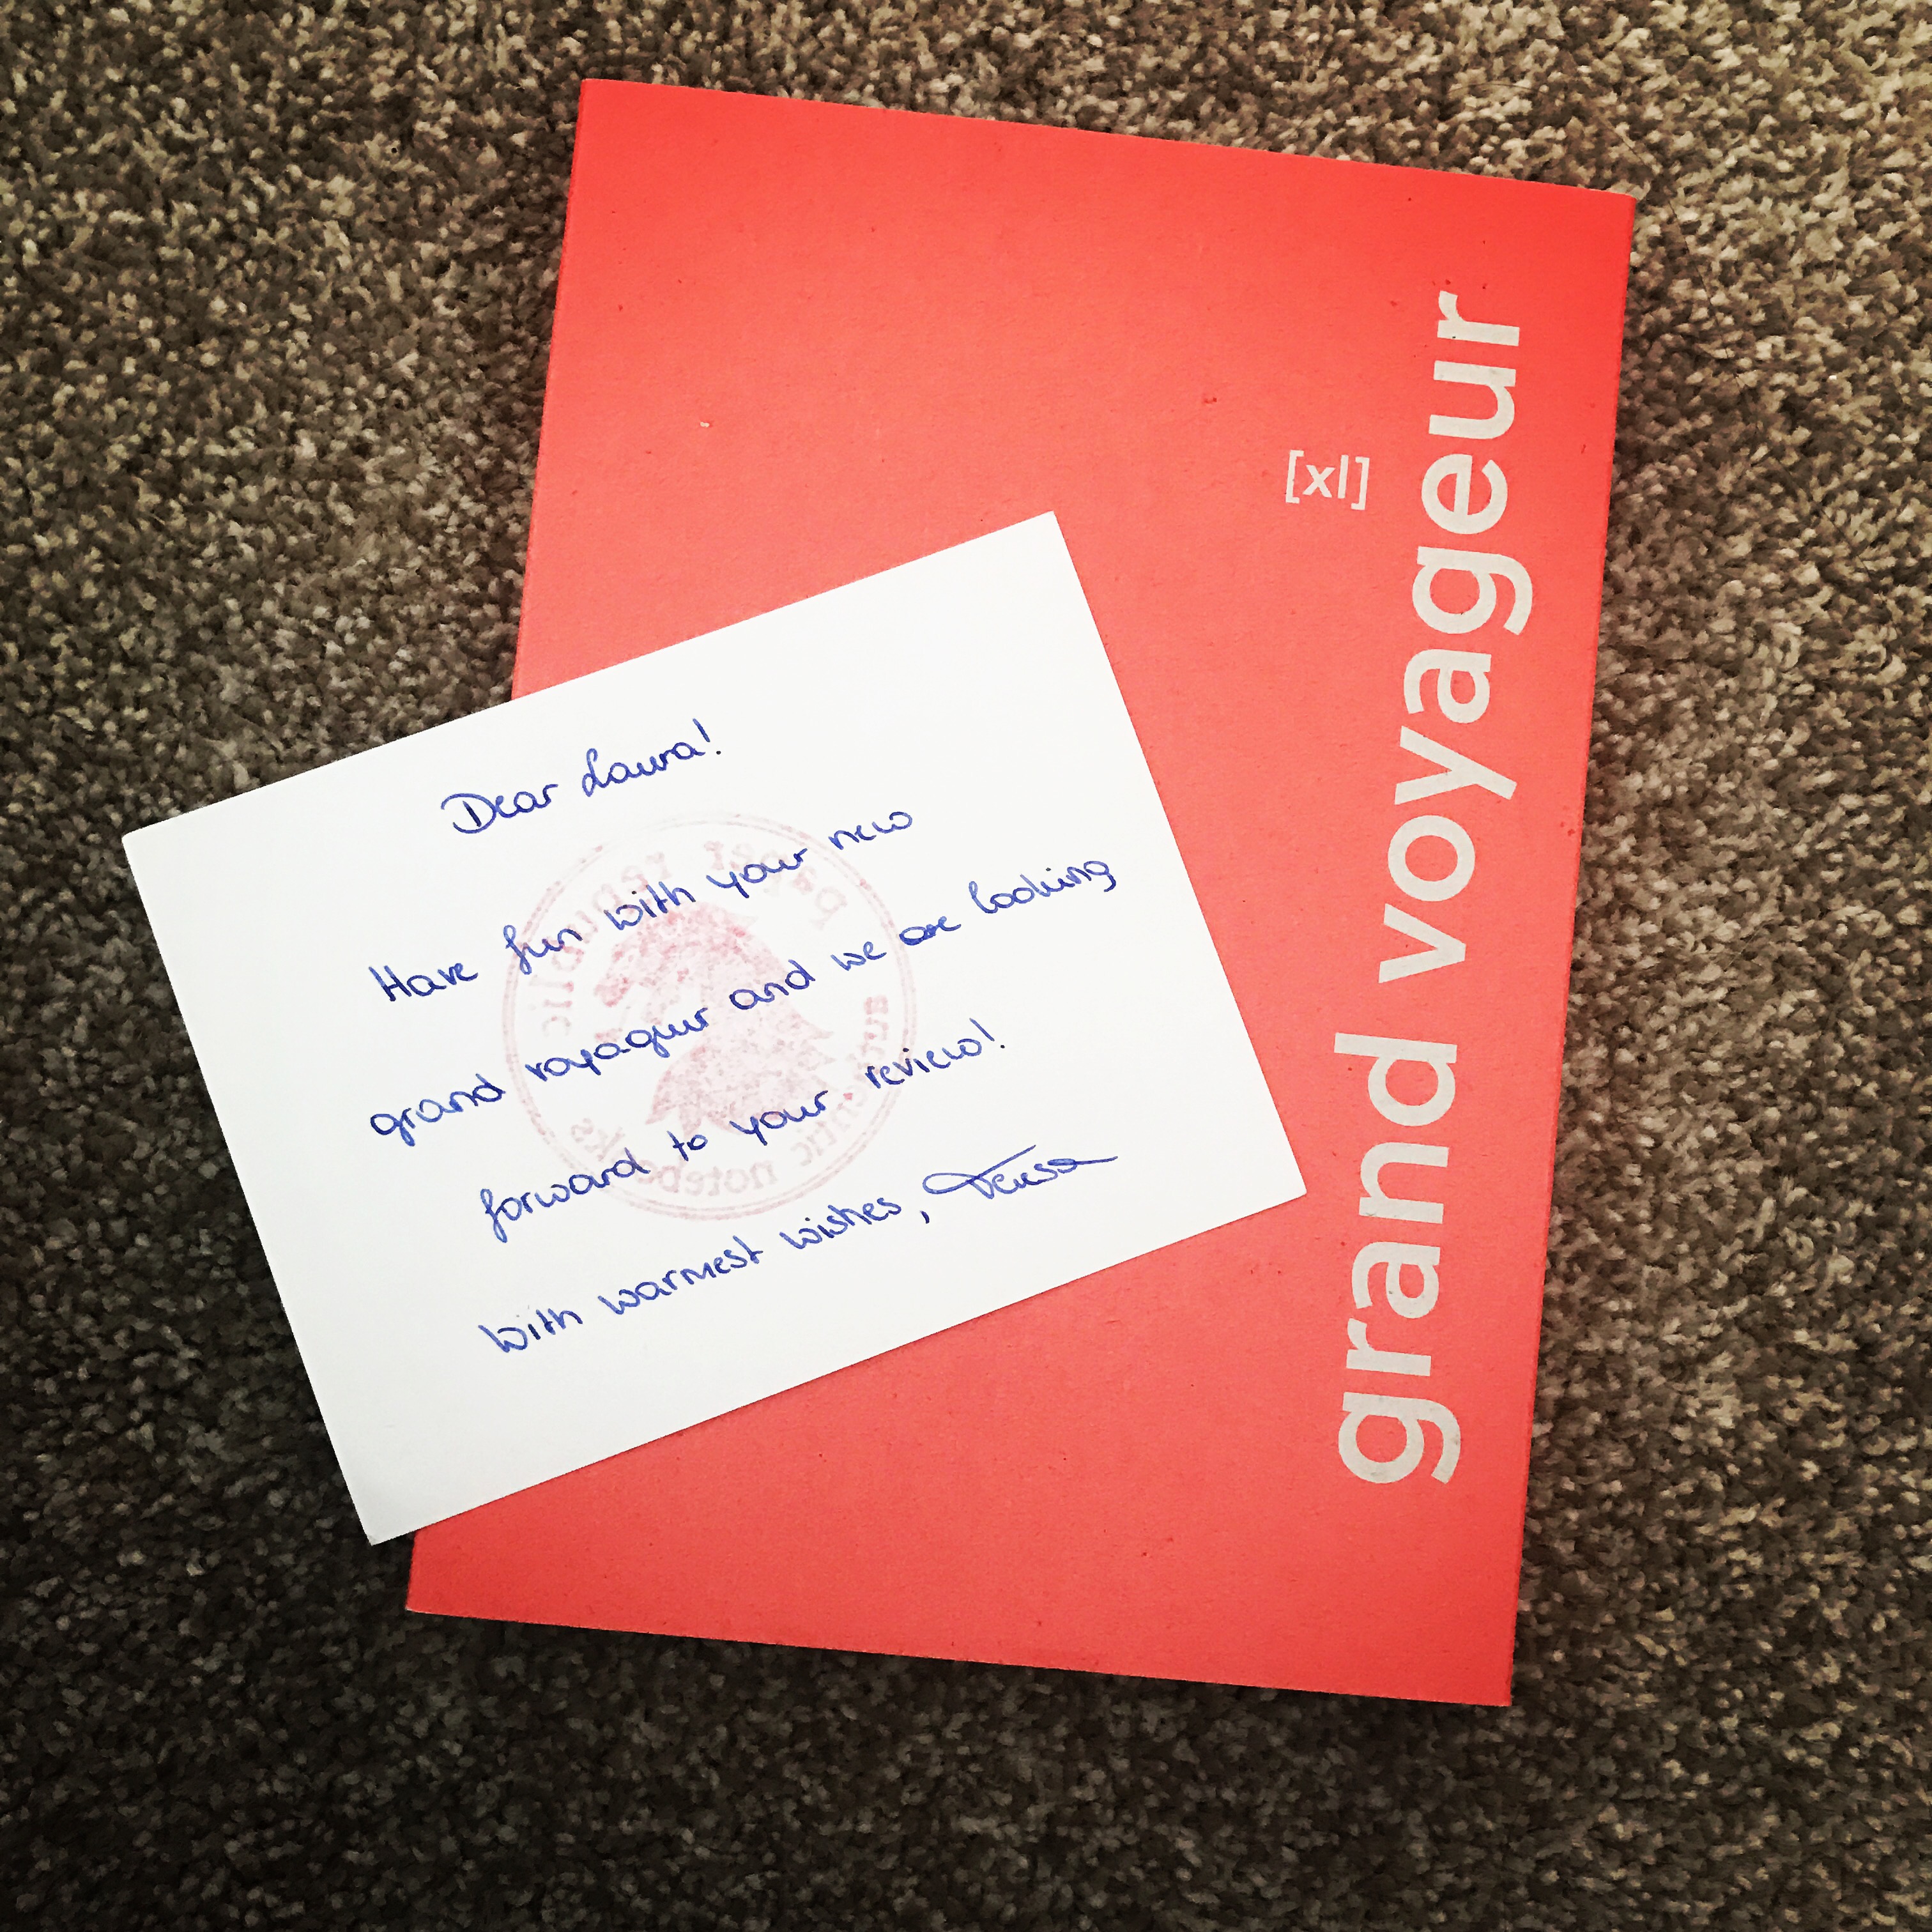 Dear Laura!
Have fun with your new
grand voyageur and we are looking
forward to your review!
With warmest wishes,
paper republic
authentic notebooks
[xl]
grand voyageur